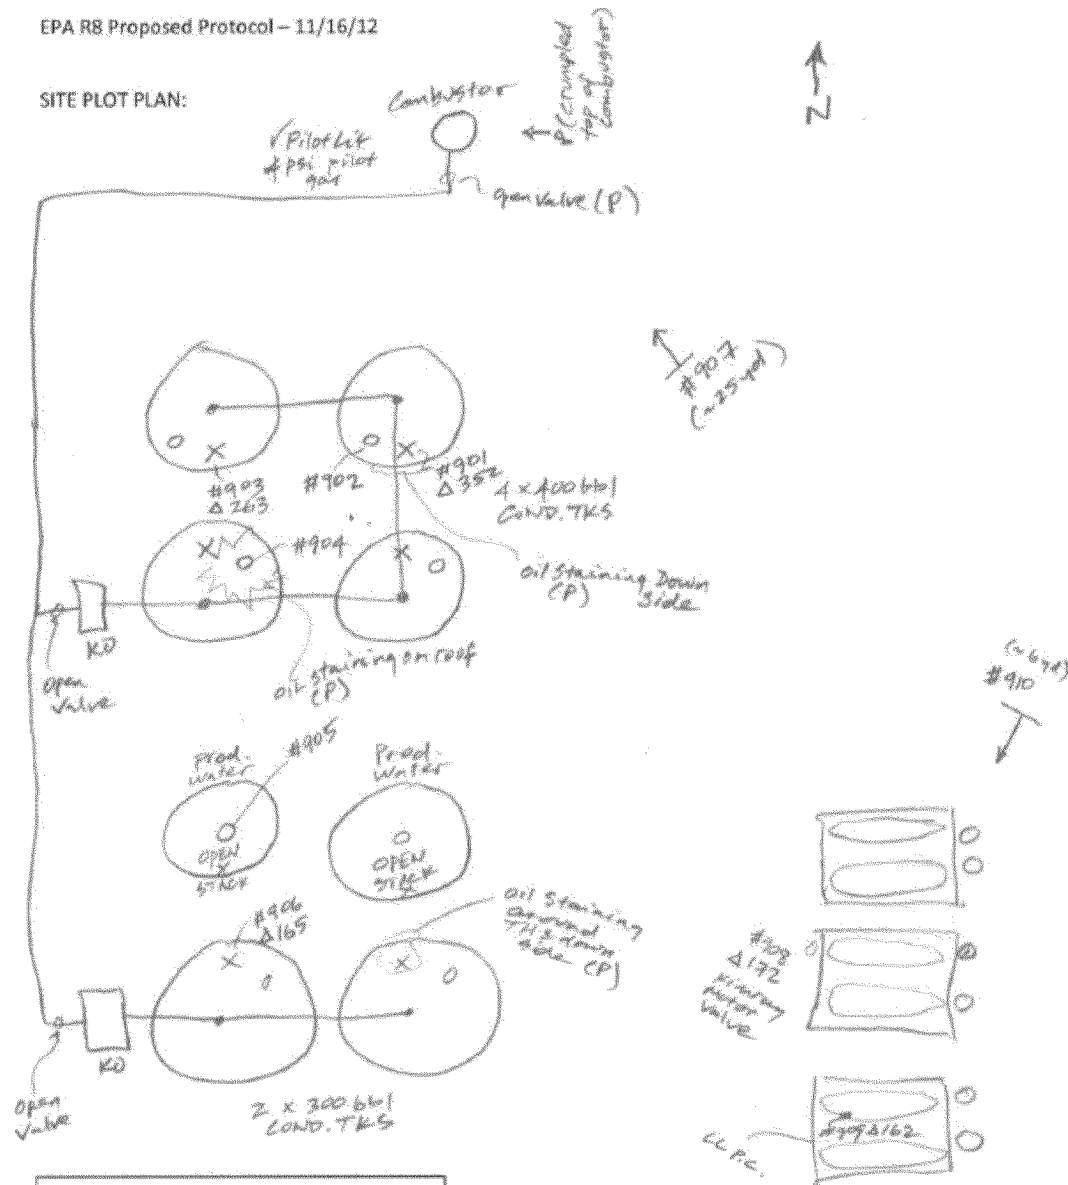 EPA R8 Proposed Protocol – 11/16/12
SITE PLOT PLAN:
Combustor
P (crumpled
top of
combustor)
N
✓ Pilot Lit
4 psi pilot
gas
open valve (P)
#907
(~25 yd)
#903
Δ 263
#902
#901
Δ 352
4 x 400 bbl
COND. TKS
#904
oil staining Down
(P) Side
KO
open
valve
oil staining on roof
(P)
(~6 yd)
#910
#905
Prod.
water
Prod.
water
OPEN
STACK
OPEN
STACK
#906
Δ165
oil staining
around
TH & down
side (P)
#908
Δ172
Kimray
motor
valve
KO
open
valve
2 x 300 bbl
COND. TKS
#909 Δ162
P.C.